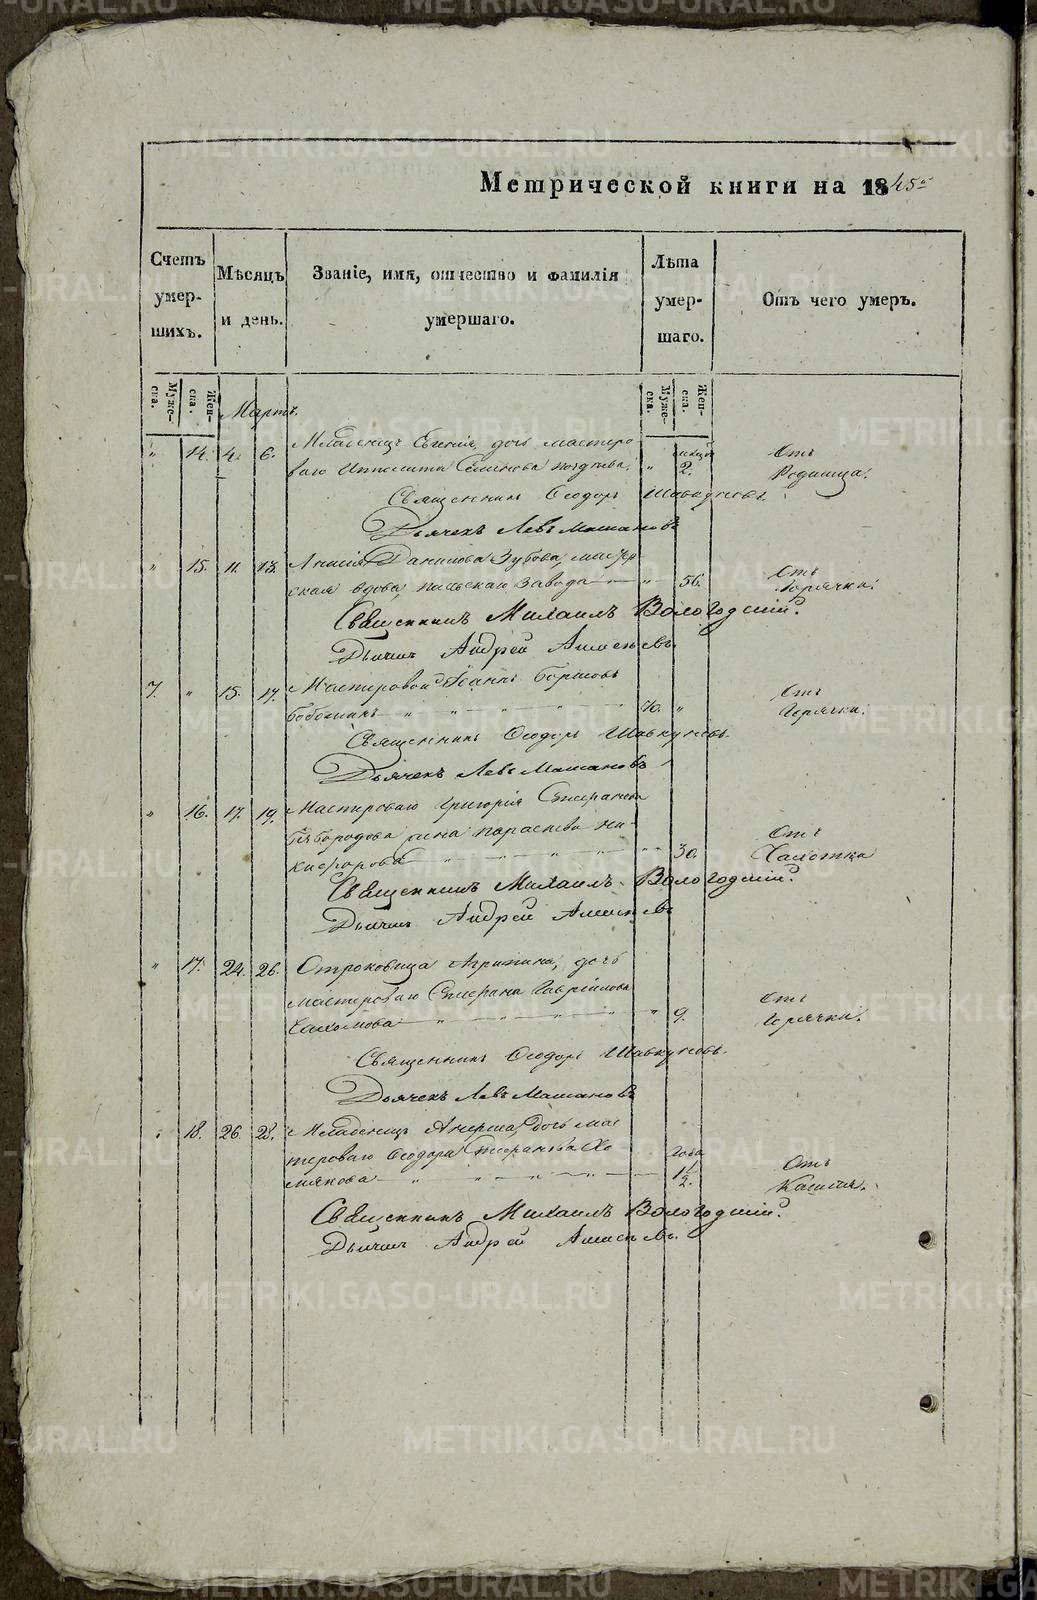 Метрической книги на 1845й
Счетъ умершихъ.
Мѣсяцъ и день.
Званіе, имя, отчество и фамилія умершаго.
Лѣта умершаго.
Отъ чего умеръ.
Мужеска.
Женска.
Мужеска.
Женска.
Мартъ.
" 14. 4. 6. Младенецъ Евгенія дочь мастеро-
ваго Ипполита Семенова " 2. Отъ Родимца.
Священникъ Феодоръ Шавкуновъ.
Дьячекъ Левъ Машановъ
" 15. 11. 13. Анисія Данилова Зубова, мастер-
ская вдова, завода " 56. Отъ Горячки.
Священникъ Михаилъ Вологодскій.
Дьячекъ Андрей
7. " 15. 17. Мастеровой Іоаннъ Борисовъ
70. " Отъ Горячки.
Священникъ Феодоръ Шавкуновъ.
Дьячекъ Левъ Машановъ
" 16. 17. 19. Мастероваго Григорія Стефанова
Безбородова жена Параскева Ни-
кифорова " 30. Отъ Чахотки
Священникъ Михаилъ Вологодскій.
Дьячекъ Андрей
" 17. 24. 26. Отроковица Агрипина, дочь
мастероваго Стефана Гаврилова
" 9. Отъ Горячки.
Священникъ Феодоръ Шавкуновъ.
Дьячекъ Левъ Машановъ
18. 26. 28. Младенецъ дочь мас-
тероваго Феодора Стефанова Хо-
мякова года 1 1/2. Отъ Кашля.
Священникъ Михаилъ Вологодскій.
Дьячекъ Андрей
METRIKI.GASO-URAL.RU